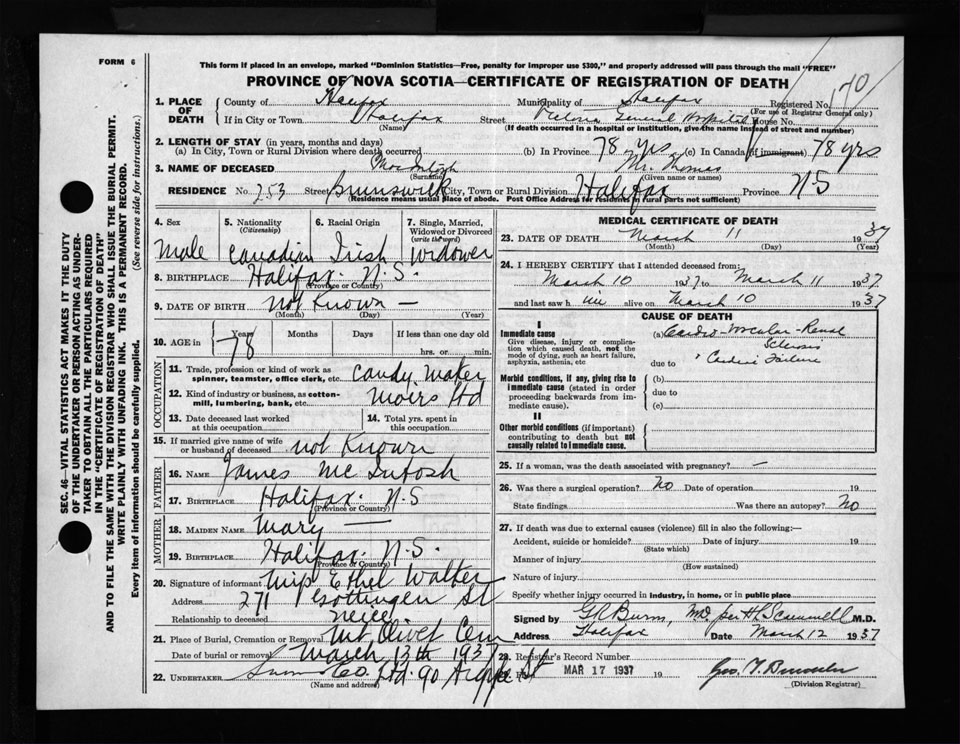 FORM 6
This form if placed in an envelope, marked "Dominion Statistics—Free, penalty for improper use $300," and properly addressed will pass through the mail "FREE"
PROVINCE OF NOVA SCOTIA—CERTIFICATE OF REGISTRATION OF DEATH
SEC. 46—VITAL STATISTICS ACT MAKES IT THE DUTY
OF THE UNDERTAKER OR PERSON ACTING AS UNDER-
TAKER TO OBTAIN ALL THE PARTICULARS REQUIRED
IN THE "CERTIFICATE OF REGISTRATION OF DEATH"
AND TO FILE THE SAME WITH THE DIVISION REGISTRAR WHO SHALL ISSUE THE BURIAL PERMIT.
WRITE PLAINLY WITH UNFADING INK. THIS IS A PERMANENT RECORD.
Every item of information should be carefully supplied. (See reverse side for instructions.)
1. PLACE OF DEATH County of Halifax Municipality of Halifax Registered No.
(For use of Registrar General only)
If in City or Town Halifax Street Victoria General Hospital House No.
(Name) (If death occurred in a hospital or institution, give the name instead of street and number)
2. LENGTH OF STAY (in years, months and days)
(a) In City, Town or Rural Division where death occurred (b) In Province 78 yrs (c) In Canada (if immigrant) 78 yrs
3. NAME OF DECEASED MacIntosh Mr. Thomas
(Surname) (Given name or names)
RESIDENCE No. 253 Street Brunswick City, Town or Rural Division Halifax Province N.S
(Residence means usual place of abode. Post Office Address for residents in rural parts not sufficient)
4. Sex Male
5. Nationality (Citizenship) Canadian
6. Racial Origin Irish
7. Single, Married, Widowed or Divorced (write the word) Widower
8. BIRTHPLACE Halifax. N.S.
(Province or Country)
9. DATE OF BIRTH not Known —
(Month) (Day) (Year)
10. AGE in Years 78 Months Days If less than one day old hrs. or min.
OCCUPATION
11. Trade, profession or kind of work as spinner, teamster, office clerk, etc. Candy Maker
12. Kind of industry or business, as cotton-mill, lumbering, bank, etc. Moirs Ltd
13. Date deceased last worked at this occupation
14. Total yrs. spent in this occupation
15. If married give name of wife or husband of deceased not Known
FATHER
16. NAME James McIntosh
17. BIRTHPLACE Halifax. N.S
(Province or Country)
MOTHER
18. MAIDEN NAME Mary —
19. BIRTHPLACE Halifax. N.S.
(Province or Country)
20. Signature of informant Ethel Walker
Address 271 Gottingen St
Relationship to deceased neice
21. Place of Burial, Cremation or Removal Mt Olivet Cem
Date of burial or removal March 13th 1937
22. UNDERTAKER Snow Co. Ltd. 90 Argyle St
(Name and address)
MEDICAL CERTIFICATE OF DEATH
23. DATE OF DEATH March 11 1937
(Month) (Day) (Year)
24. I HEREBY CERTIFY that I attended deceased from:
March 10 1937 to March 11 1937
and last saw him alive on March 10 1937
CAUSE OF DEATH
I
Immediate cause
Give disease, injury or complication which caused death, not the mode of dying, such as heart failure, asphyxia, asthenia, etc
(a) Cardio-Vascular-Renal
Sclerosis
due to Cardiac Failure
Morbid conditions, if any, giving rise to immediate cause (stated in order proceeding backwards from immediate cause).
(b)
due to
(c)
II
Other morbid conditions (if important) contributing to death but not causally related to immediate cause.
25. If a woman, was the death associated with pregnancy? —
26. Was there a surgical operation? No Date of operation 19
State findings Was there an autopsy? No
27. If death was due to external causes (violence) fill in also the following:—
Accident, suicide or homicide? Date of injury 19
(State which)
Manner of injury
(How sustained)
Nature of injury
Specify whether injury occurred in industry, in home, or in public place
Signed by G R Burns, MD per H L Scammell M.D.
Address Halifax Date March 12 1937
28. Registrar's Record Number
MAR 17 1937 19
(Division Registrar)